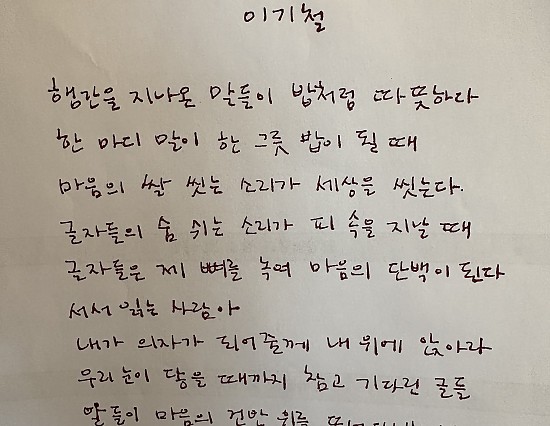 이기철
행간을 지나온 말들이 밥처럼 따뜻하다
한 마디 말이 한 그릇 밥이 될 때
마음의 쌀 씻는 소리가 세상을 씻는다.
글자들의 숨 쉬는 소리가 피 속을 지날 때
글자들은 제 뼈를 녹여 마음의 단백이 된다
서서 읽는 사람아
내가 의자가 되어줄께 내 위에 앉아라
우리 눈이 닿을 때까지 참고 기다린 글들
말들이 마음의 건반 위를